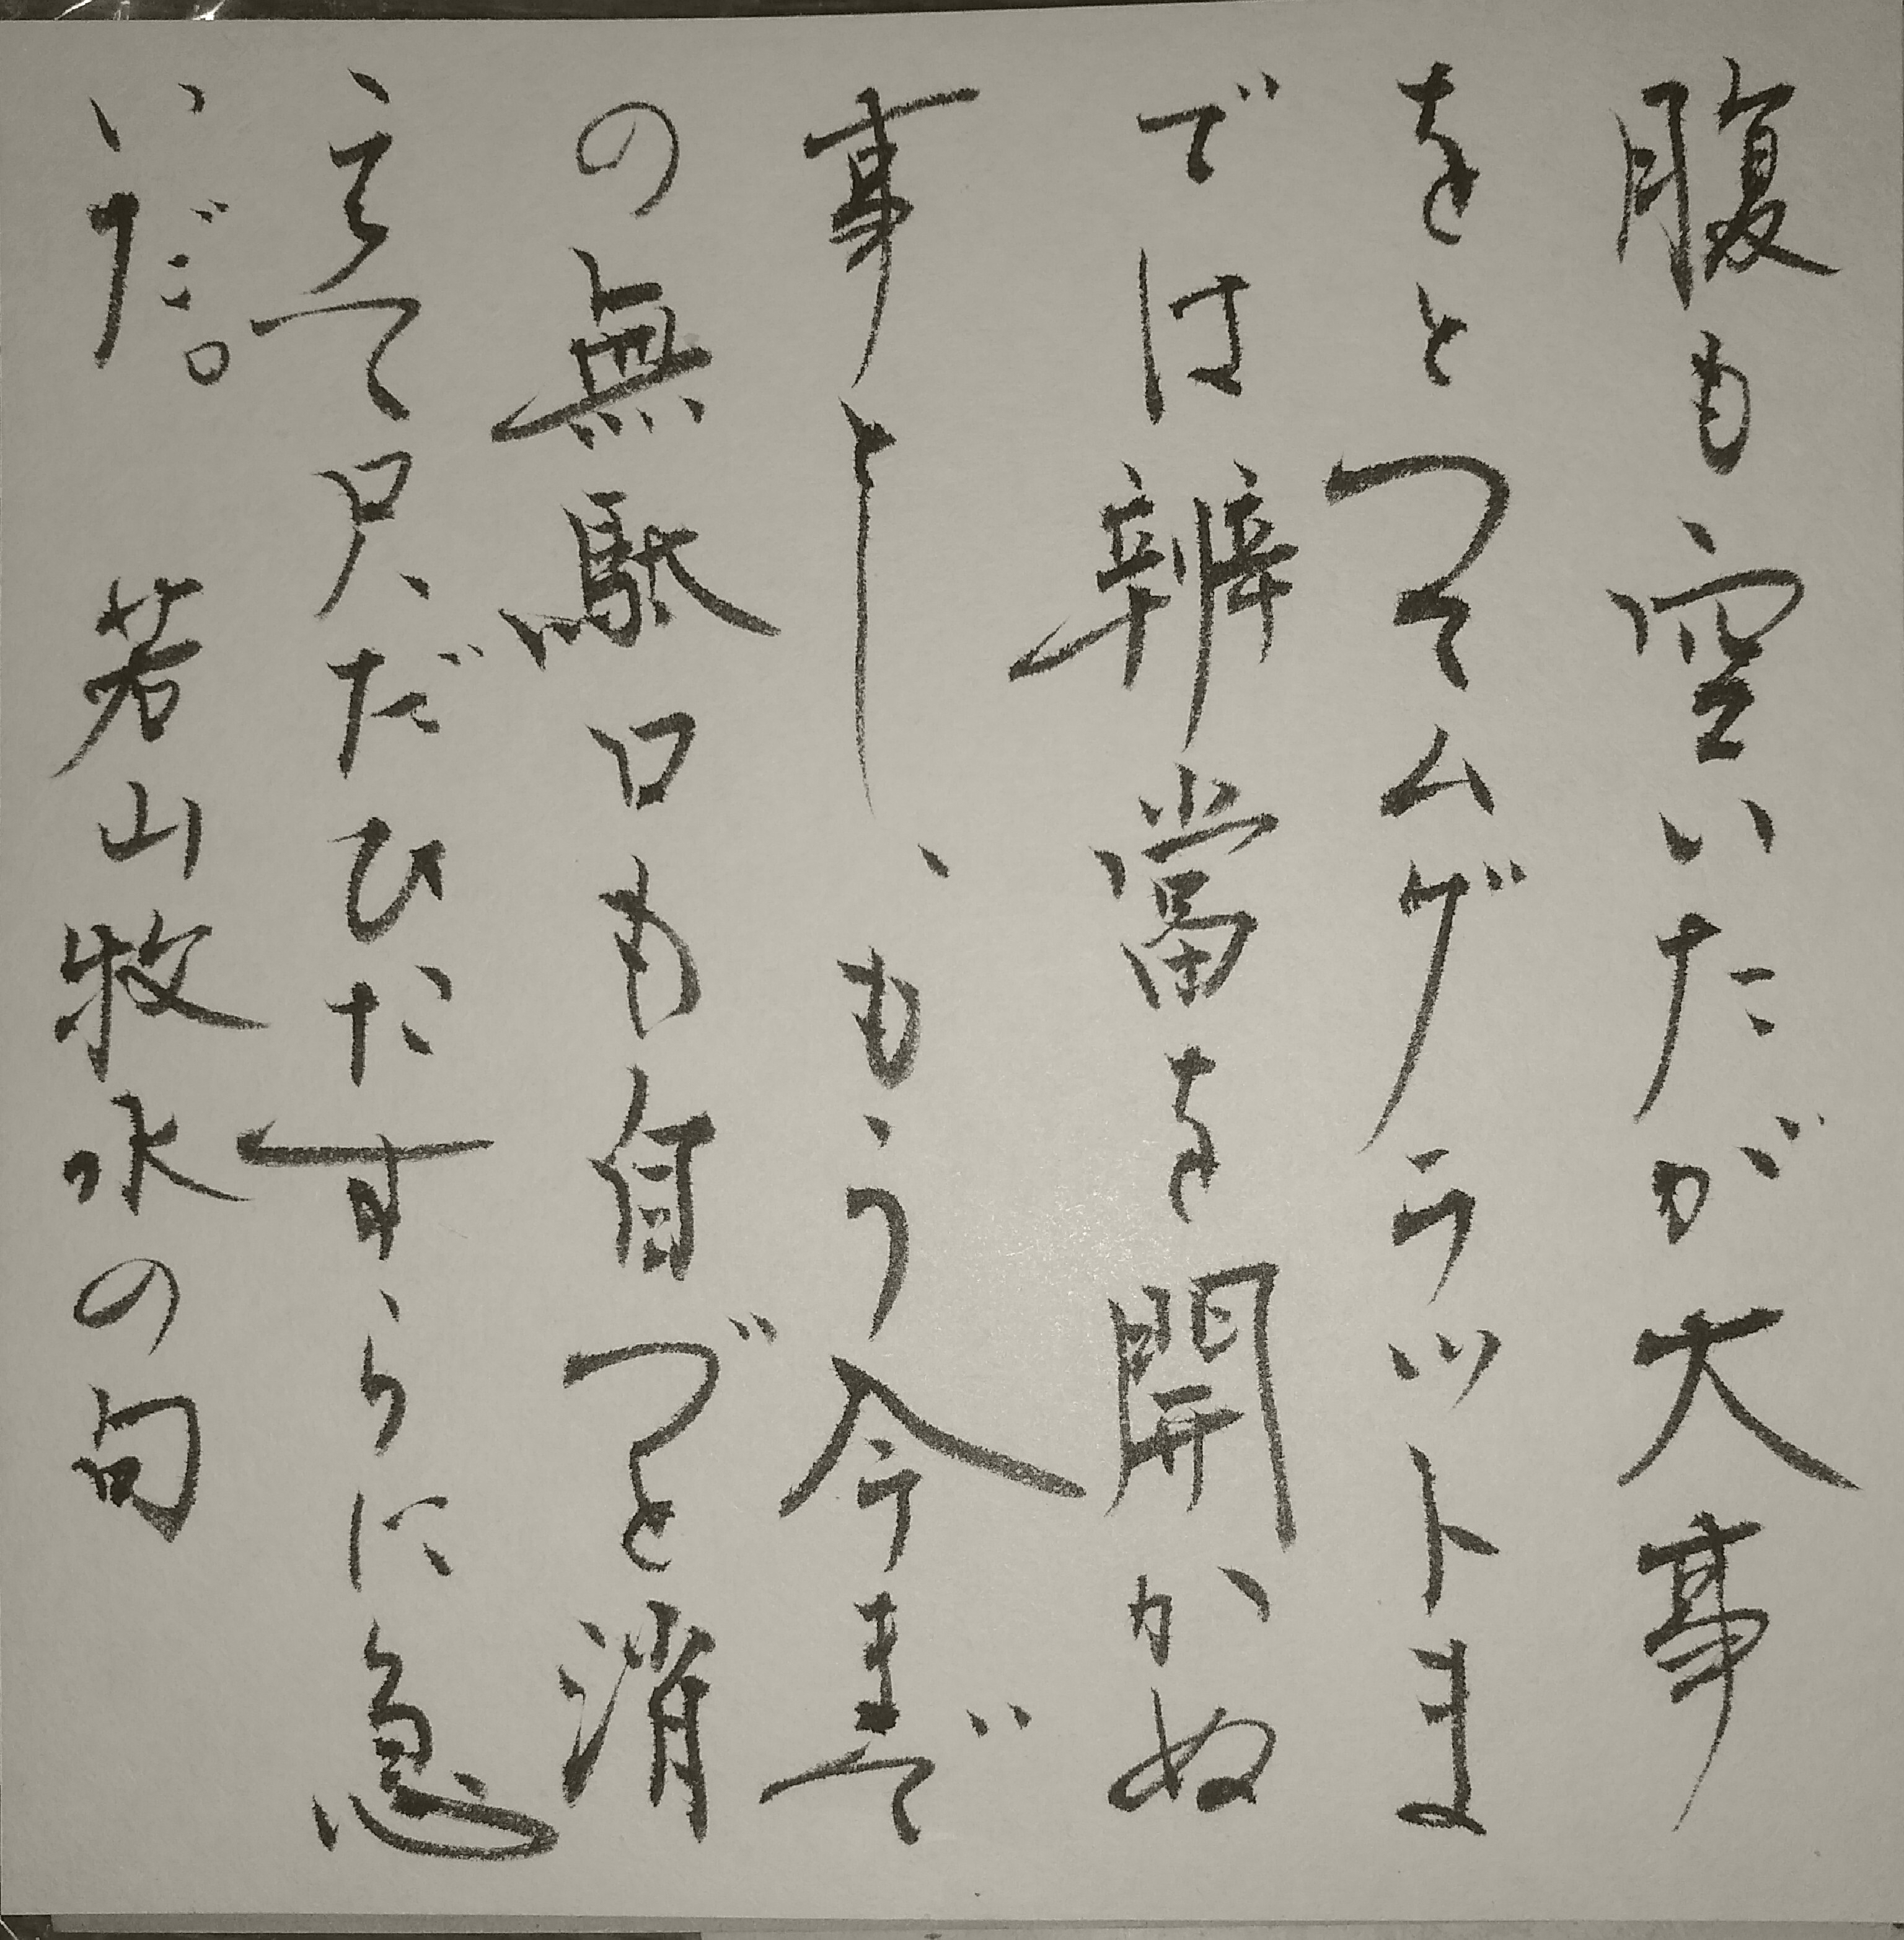 腹も空いたが大事
をとつてムグラツトま
では辨當を開かぬ
事とし、もう今まで
の無駄口も自づと消
えて只だひたすらに急
いだ。 若山牧水の句